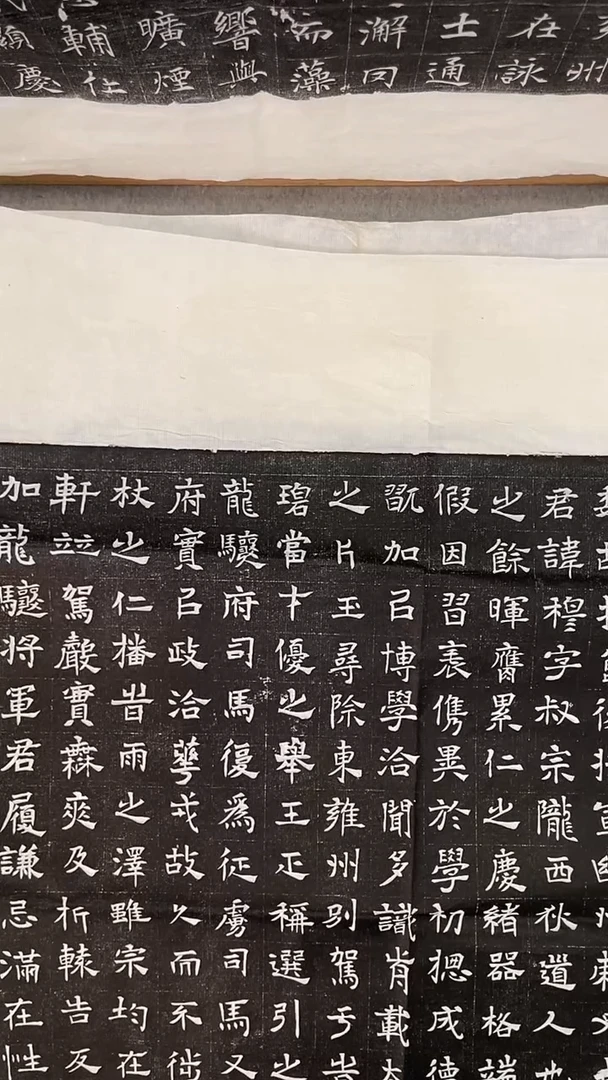 州
在詠
士通
澥囙
而藻
響與
曠煙
輔仕
慶
君諱穆字叔宗隴西狄道人也
之餘暉膺累仁之慶緒器格端
假因習袠儁異於學初摠成德
翫加㠯博學洽聞多識肯載
之片玉尋除東雍州別駕于告
碧當才優之舉王正稱選引之
龍驤府司馬復爲征虜司馬又
府實㠯政洽戎故久而不徙
杖之仁播昔雨之澤雖宗均在
軒竝駕聲實奭及析轅告反
加龍驤將軍君履謙忌滿在性